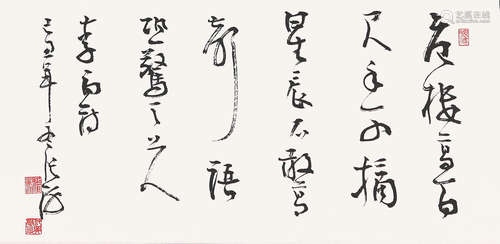 危楼高百
尺手可摘
星辰不敢高
声语
恐惊天上人
李白诗